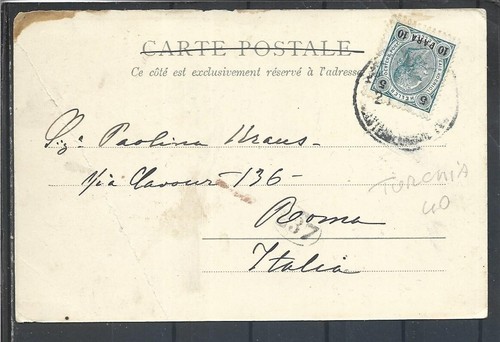 CARTE POSTALE
Ce côté est exclusivement réservé à l'adresse
10 PARA 10
5 5
Sig.a Paolina Kraus-
Via Cavour-136-
Roma
237
Italia
TURCHIA
40